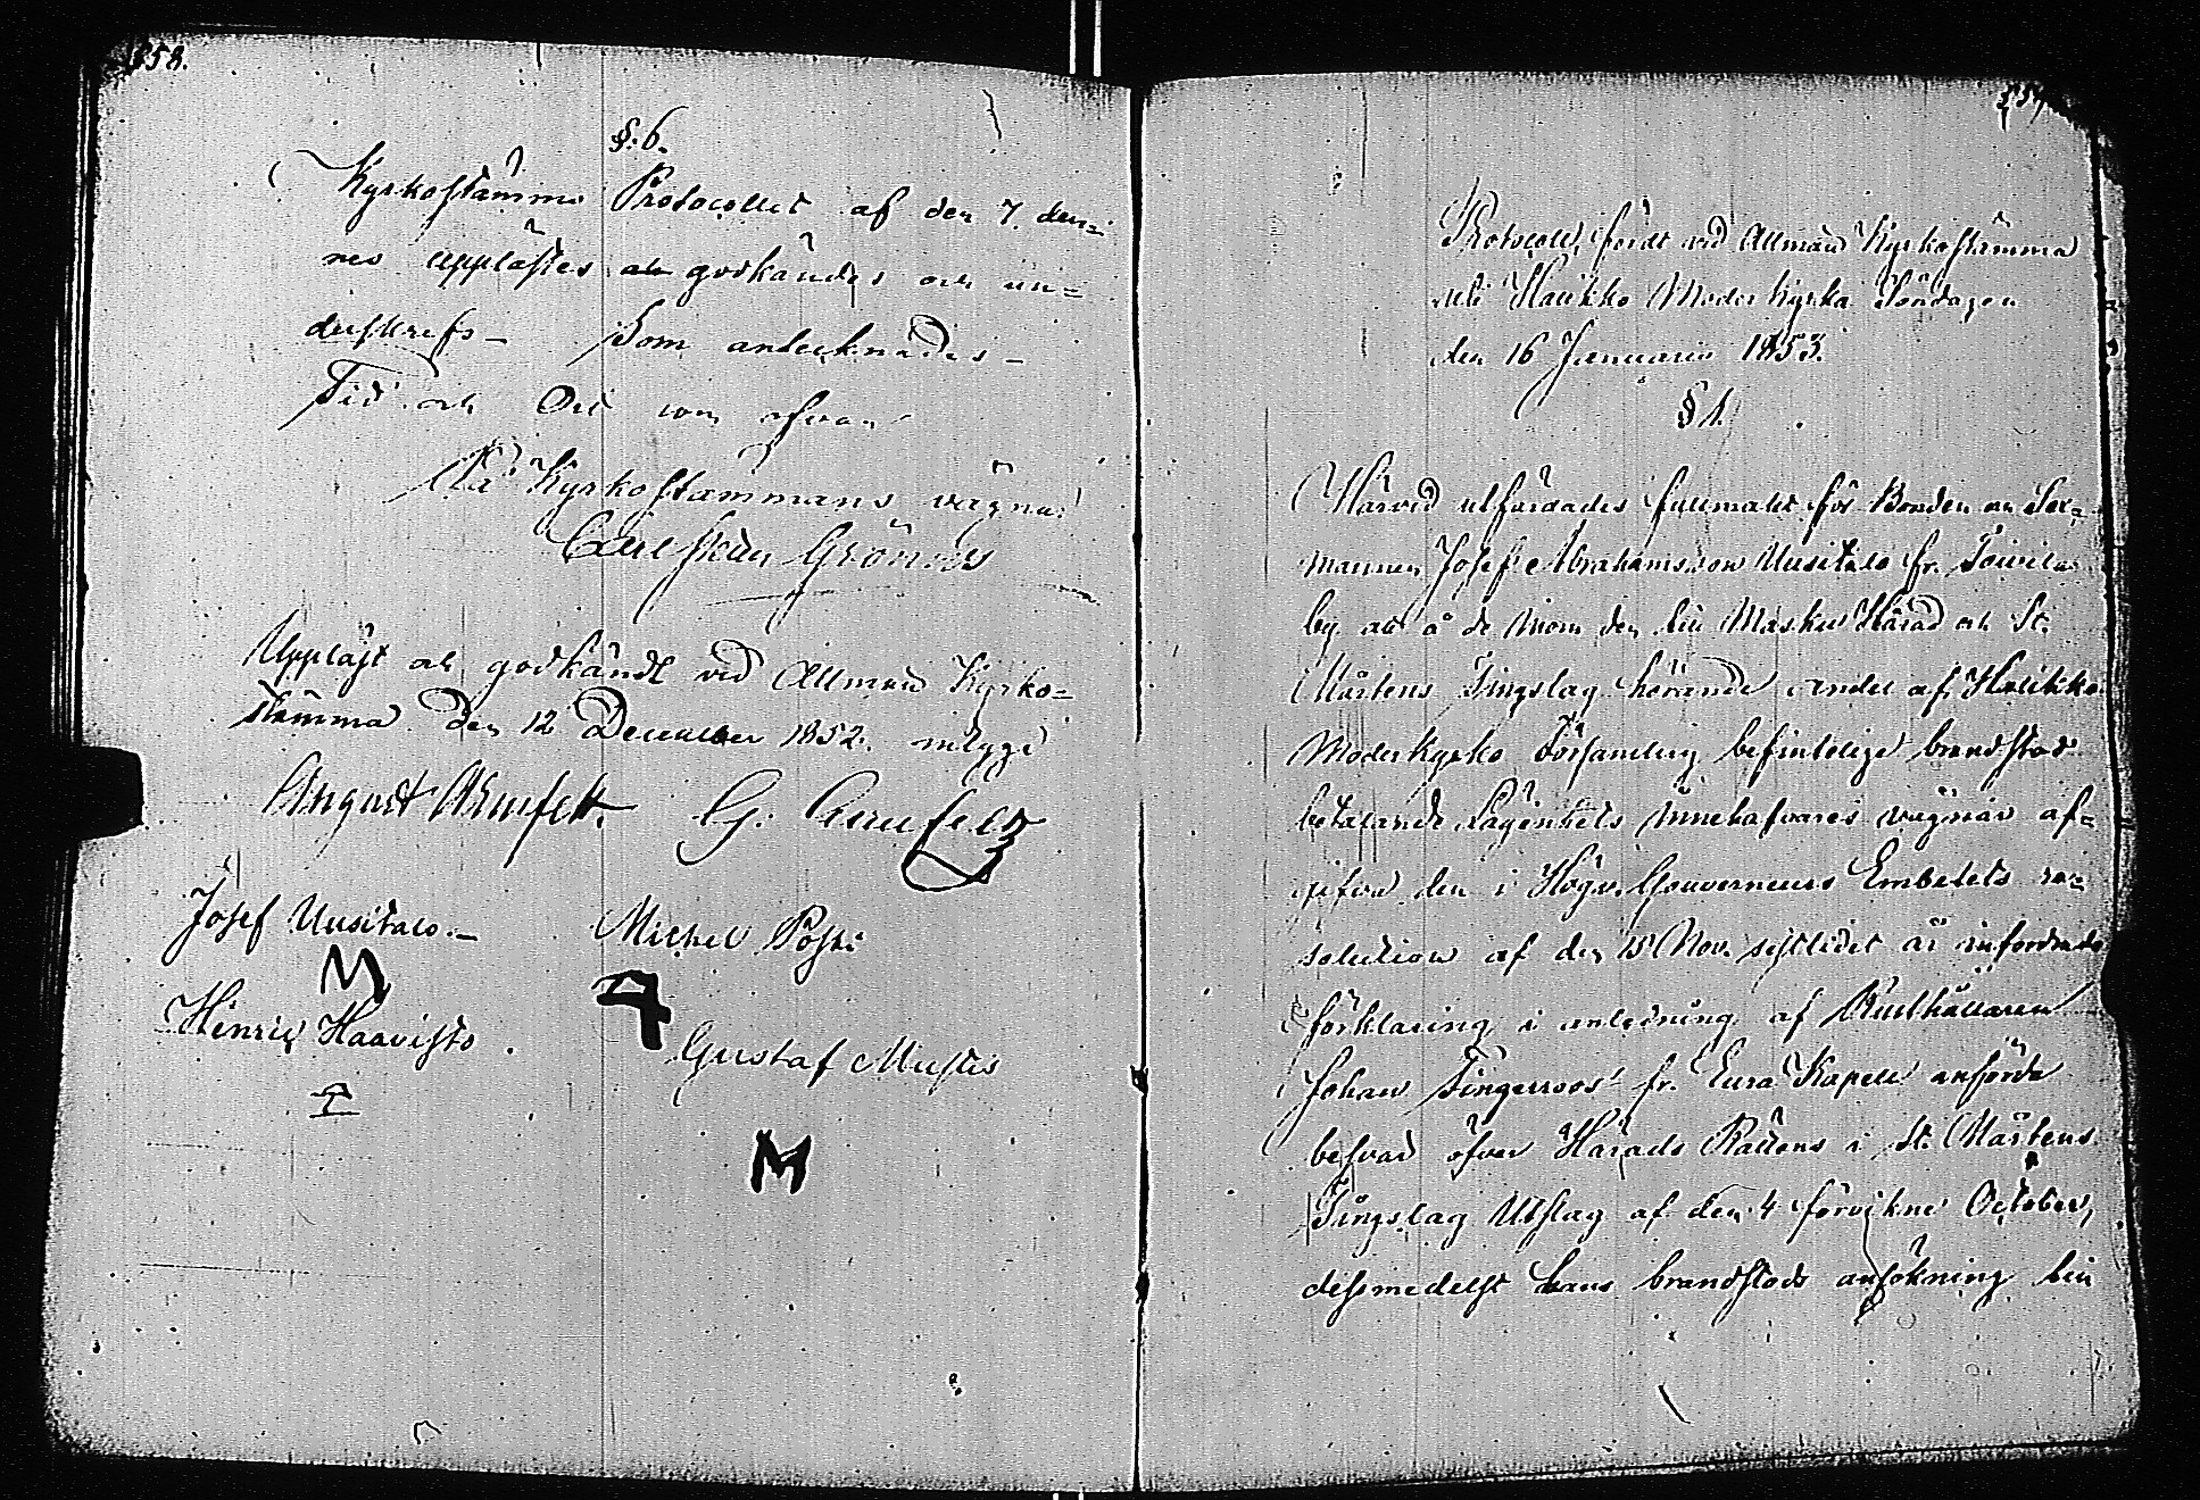 358.
§. 6.
Kyrkostämmo Protocollet af den 7. den=
nes upplästes godkändes och un=
derskrefs – Som antecknades –
Tid och Ort som ofvan
På Kyrkostämmans vägnar
Carl Grönroos
Uppläst och godkändt vid Allmän Kyrko=
stämma den 12 December 1852. intyga
August Armfelt. G. Armfelt
Josef Uusitalo. –
Michel Poski
M
Henric Haavisto.
Gustaf Mustis
M
359
Protocoll, fördt vid Allmän Kyrkostämma
uti Halikko Moder Kyrka Söndagen
den 16 Januarii 1853.
§ 1.
Härvid utfärdades fullmakt för Bonden och Sex=
mannen Josef Abrahamsson Uusitalo fr. Toivila
by att å de inom den till Masku Härad och St.
Mårtens Tingslag hörande andel af Halikko
Moderkyrko Församling befintelige brandstod
betalande Lägenhets innehafvares vägnar af=
gifva den i Högv. Gouverneurs Embetets re=
solution af den 15 Nov. sistlidet år infordrade
förklaring i anledning af Rusthållaren
Johan Tingerroos' fr. Eura Kapell anförde
besvär öfver Härads Rättens i St. Mårtens
Tingslag Utslag af den 4 förvikne October,
dessmedelst hans brandstods ansökning blir